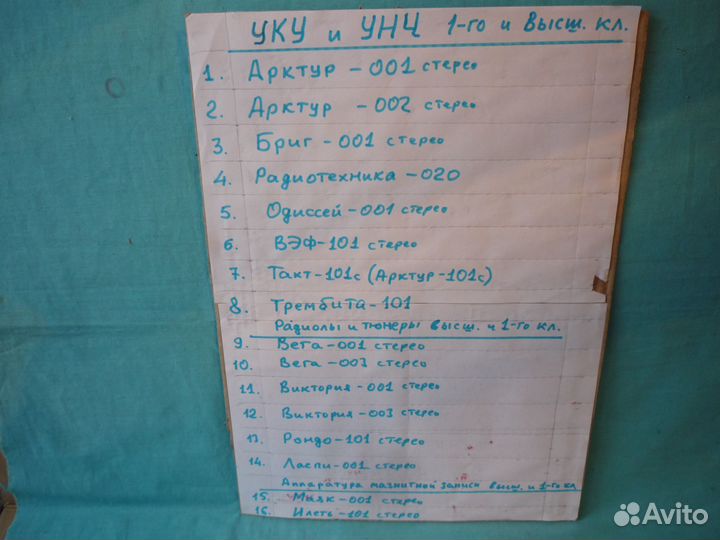 УКУ и УНЧ 1-го и высш. кл.
1. Арктур - 001 стерео
2. Арктур - 002 стерео
3. Бриг - 001 стерео
4. Радиотехника - 020
5. Одиссей - 001 стерео
6. ВЭФ-101 стерео
7. Такт-101с (Арктур-101с)
8. Трембита-101
Радиолы и тюнеры высш. и 1-го кл.
9. Вега-001 стерео
10. Вега-003 стерео
11. Виктория-001 стерео
12. Виктория-003 стерео
13. Рондо-101 стерео
14. Ласпи-001 стерео
Аппаратура магнитной записи высш. и 1-го кл
15. Маяк-001 стерео
16. Илеть-101 стерео
Avito